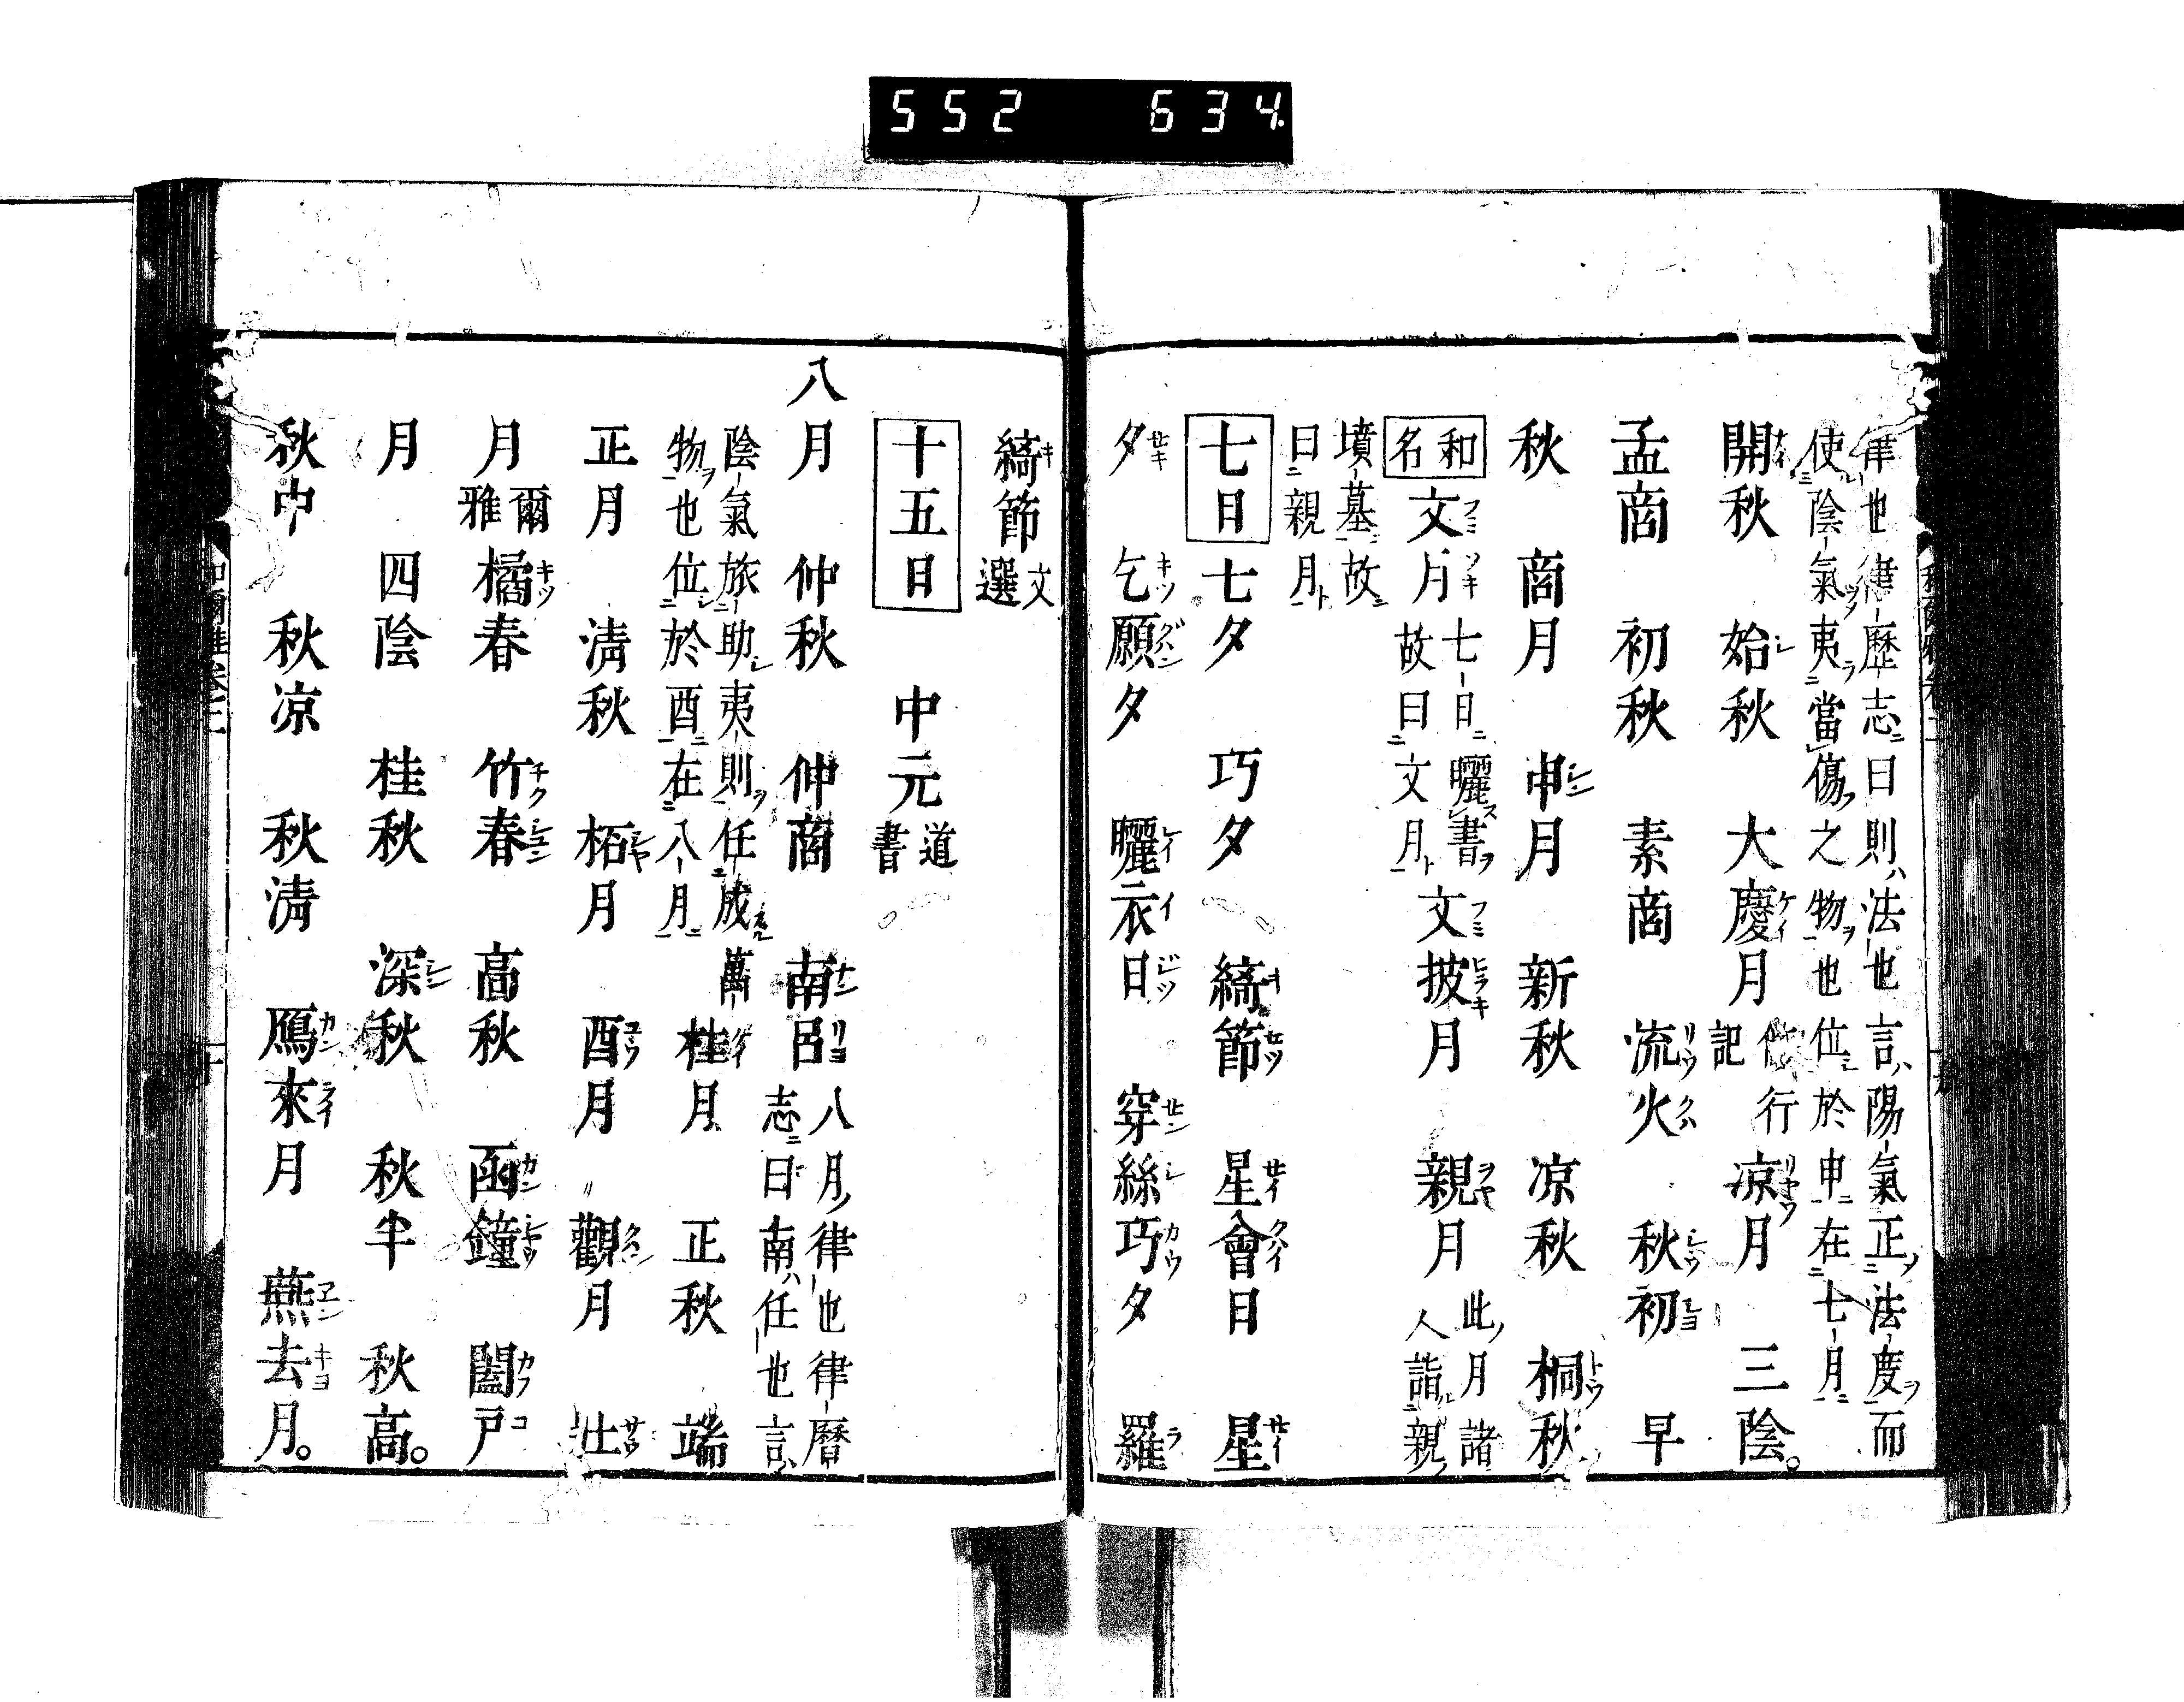 552 634
律也律歴志曰則法也言陽氣正法度而
使陰氣夷當傷之物也位於申在七月
開秋 始秋 大慶月 修行記 凉月 三陰
孟商 初秋 素商 流火 秋初 早
秋 商月 申月 新秋 凉秋 桐秋
和名 文月 七日曬書故曰文月 文披月 親月 此月諸人詣親
墳墓故曰親月
七日 七夕 巧夕 綺節 星會日 星
夕 乞願夕 曬衣日 穿絲巧夕 羅
綺節 文選
十五日 中元 道書
八月 仲秋 仲商 南呂 八月律也律暦志曰南任也言
陰氣旅助夷則任成萬物也位於酉在八月 桂月 正秋 端
正月 淸秋 柘月 酉月 觀月 壯
月 爾雅 橘春 竹春 高秋 函鐘 闔戸
月 四陰 桂秋 深秋 秋半 秋高
秋中 秋凉 秋淸 鴈來月 燕去月